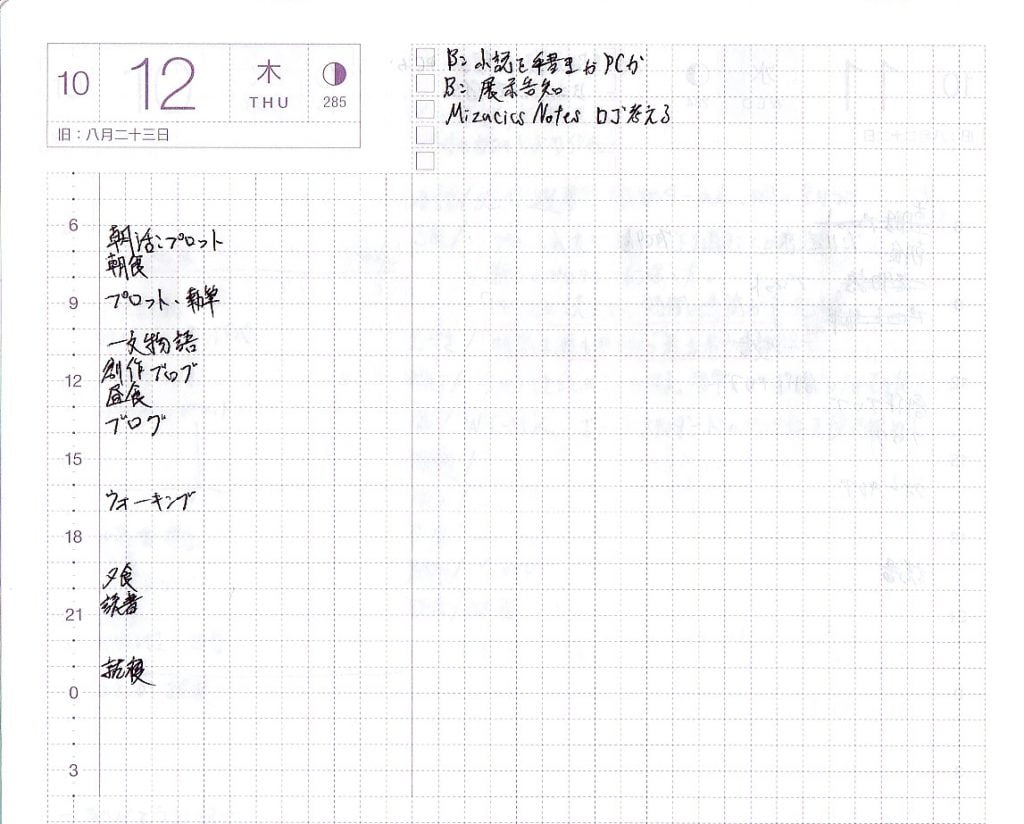 10 12 木 THU 285
旧：八月二十三日
B: 小説を手書きかPCか
B: 展示告知
Mizacics Notes ロゴ考える
6
朝活：プロット
朝食
9 プロット、執筆
一文物語
創作ブログ
12
昼食
ブログ
15
ウォーキング
18
夕食
読書
21
就寝
0
3